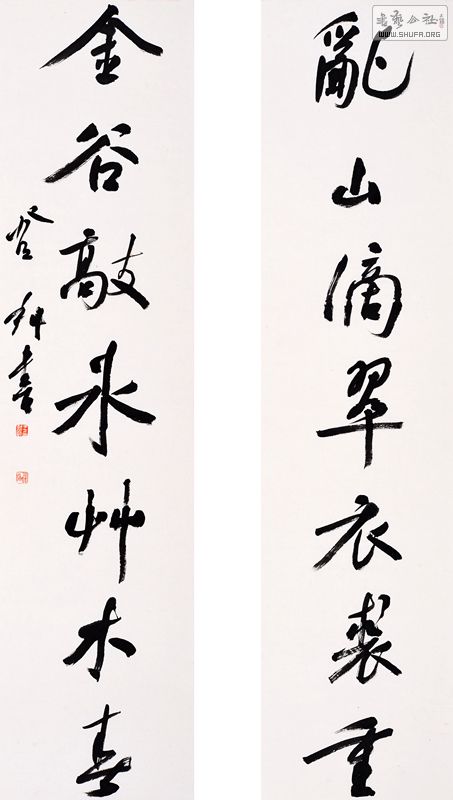 亂山滴翠衣裘重
金谷敲氷艸木春
登科書
書藝公社
WWW.SHUFA.ORG